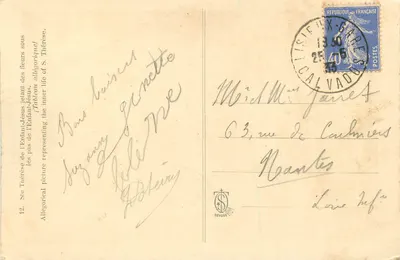 12. Ste Thérèse de l'Enfant-Jésus jetant des fleurs sous
les pas de l'Enfant-Jésus.
(Tableau allégorique)
Allegorical picture representing the inner life of S. Thérèse.
Bons baisers
Suzanne Ginette
Hélène
RÉPUBLIQUE FRANÇAISE
40c
POSTES
LISIEUX-GARE
CALVADOS
25-6
M et Mme
63, rue de
Nantes
Loire Infre